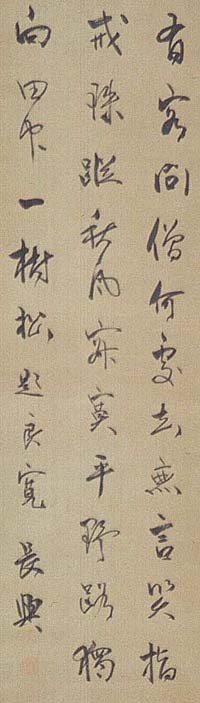 有客問僧何處去無言笑指
戒珠蹤秋風寂寞平野路獨
向田中一樹松題良寛 長興